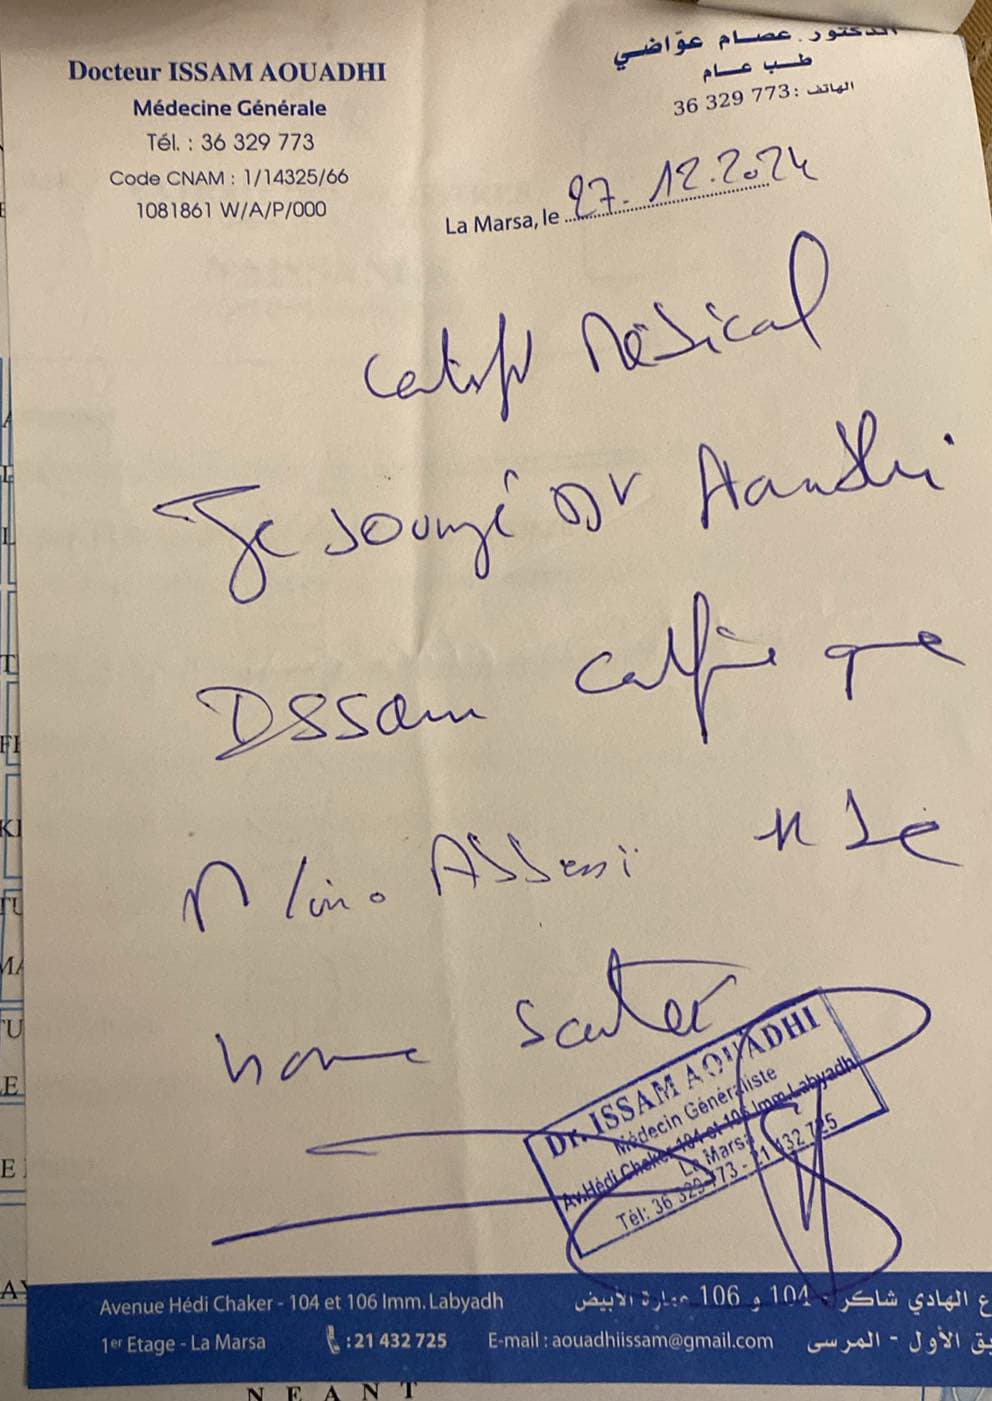 Docteur ISSAM AOUADHI
Médecine Générale
Tél. : 36 329 773
Code CNAM : 1/14325/66
1081861 W/A/P/000
الدكتور عصام عوّاضي
طب عام
الهاتف : 36 329 773
La Marsa, le 27.12.2024
Certificat Médical
Je soussigné Dr Aouadhi
Issam certifie que
est de
bonne santé
Dr. ISSAM AOUADHI
Médecin Généraliste
Av. Hédi Chaker 104 et 106 Imm. Labyadh
La Marsa
Tél: 36 329 773 - 21 432 725
Avenue Hédi Chaker - 104 et 106 Imm. Labyadh
1er Etage - La Marsa
: 21 432 725
E-mail : aouadhiissam@gmail.com
ع الهادي شاكر - 104 و 106 عمارة الأبيض
الأول - المرسى
NEANT